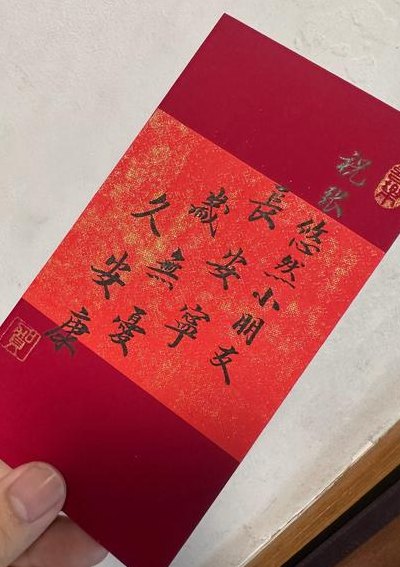 祝張悠然小朋友
長安寧
歲無憂
久安康